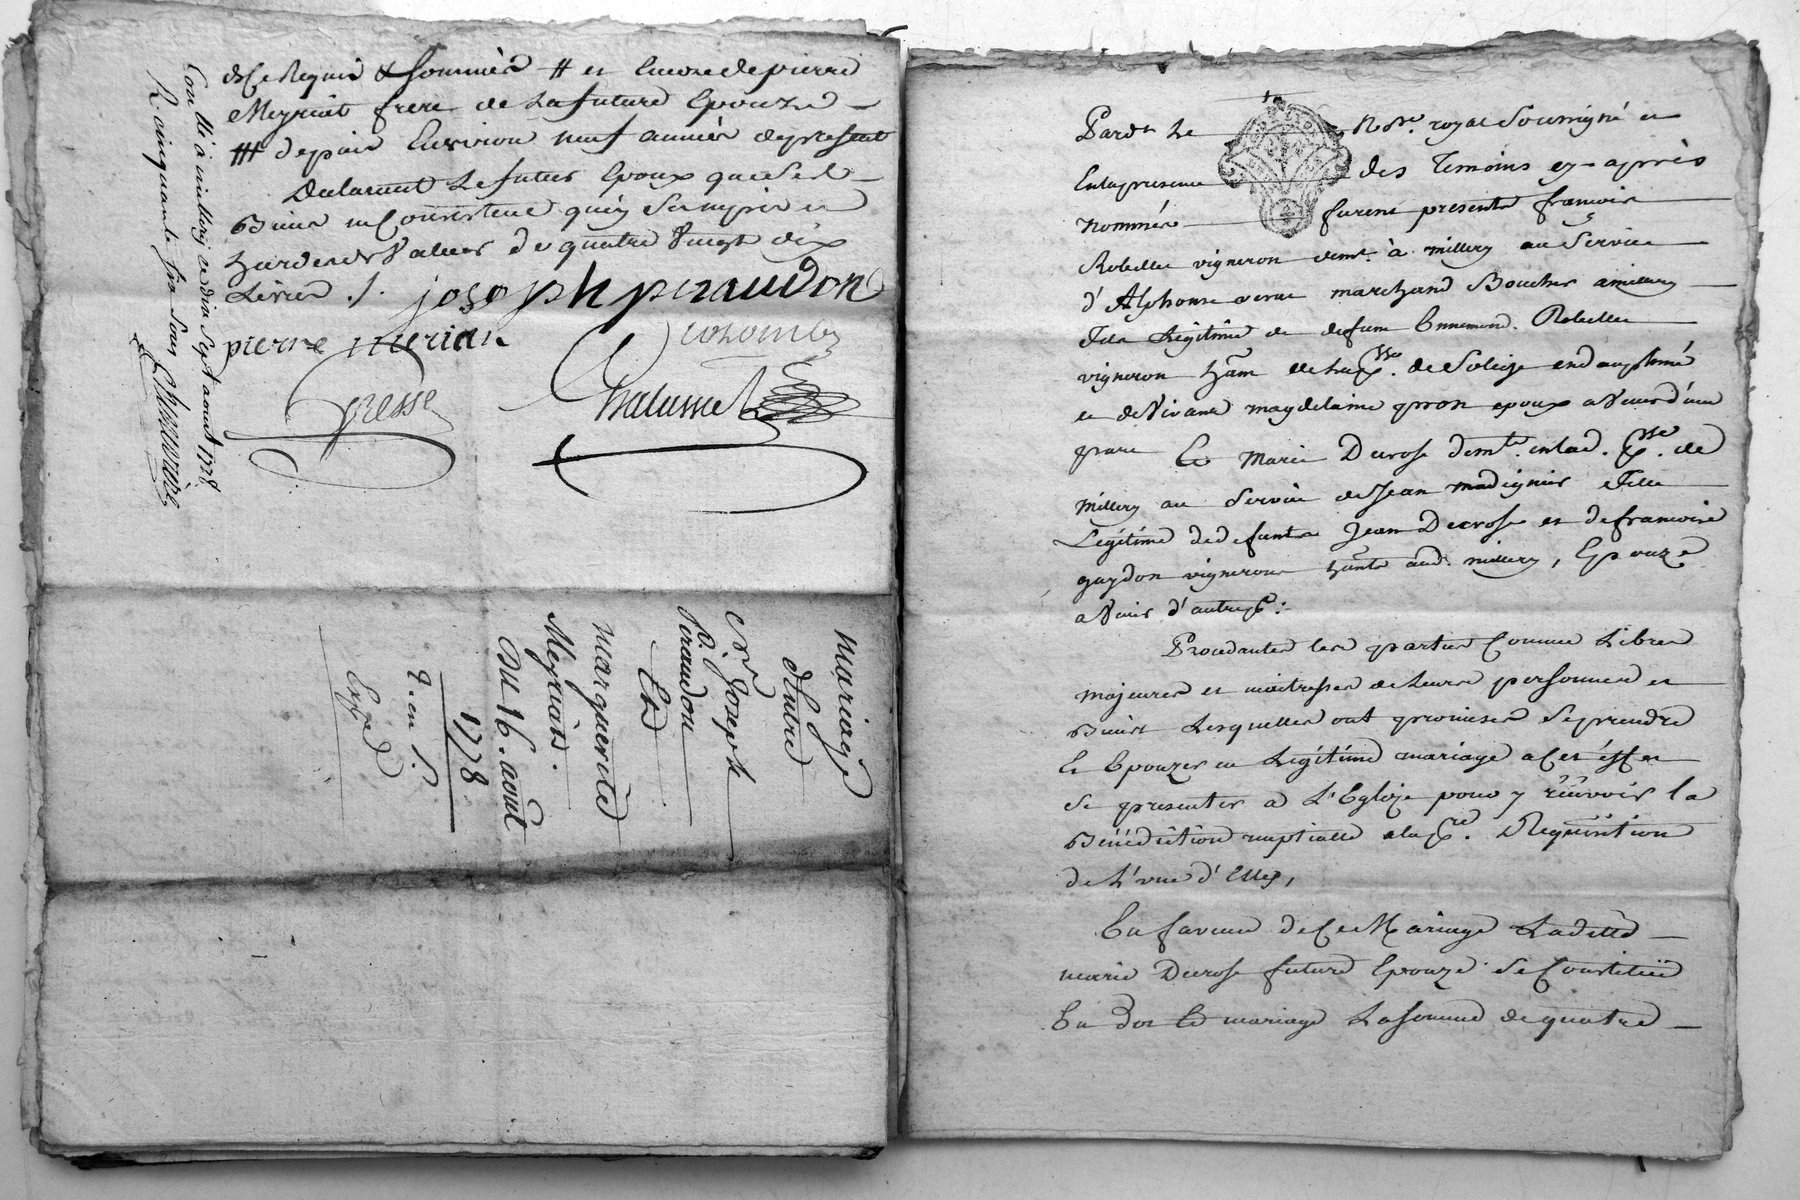 de ce Requis & sommés # et Encore de pierre
Meyriat frere de La future Epouze
## depuis Environ neuf années de present
Declarant Le futur Epoux que Ses
Biens ne Consistent qu'en Ses
hardes de Valeur de quatre Vingt dix
Livres ./.
joseph peraudon
pierre merian
Colombe
Gresse
Chalumet
Con.llé à millery ce dix Sept aout 1778
R. cinquante six sous
mariage
d'Entre
Sr. Joseph
P. Peraudon
Et
marguerite
Meyriat.
Du 16. août
1778
q. en P.
Exp.é
Pardt Le Nore. royal Soussigné et
En la presence des Temoins cy-après
nommés furent presents francois
Robellet vigneron demt. à millery au Service
d'Alphonse marchand Boucher a millery
fils Legitime de defunt Ennemond. Robellet
vigneron ham. de la psse. de Soleize en dauphiné
et de Vivante magdelaine epoux a Venir d'une
part Et Marie Decrose demte. en lad. psse. de
millery au Service de Jean madignier fille
Legitime de defunts Jean Decrose et de francoise
gaydon vignerons hants aud. millery, Epouze
a Venir d'autre p:
Procedantes les parties Comme Libres
majeures et maitresses de Leurs personnes et
Biens Lesquelles ont promises Se prendre
Et Epouzer en Legitime mariage a Cet éffet
Se presenter a L'Eglize pour y récevoir la
Bénédiction nuptialle a la pre. Requisition
de L'une d'Elles,
En faveur de Ce Mariage Ladette
marie Decrose future Epouze Se Constituë
En Dot Et mariage La somme de quatre